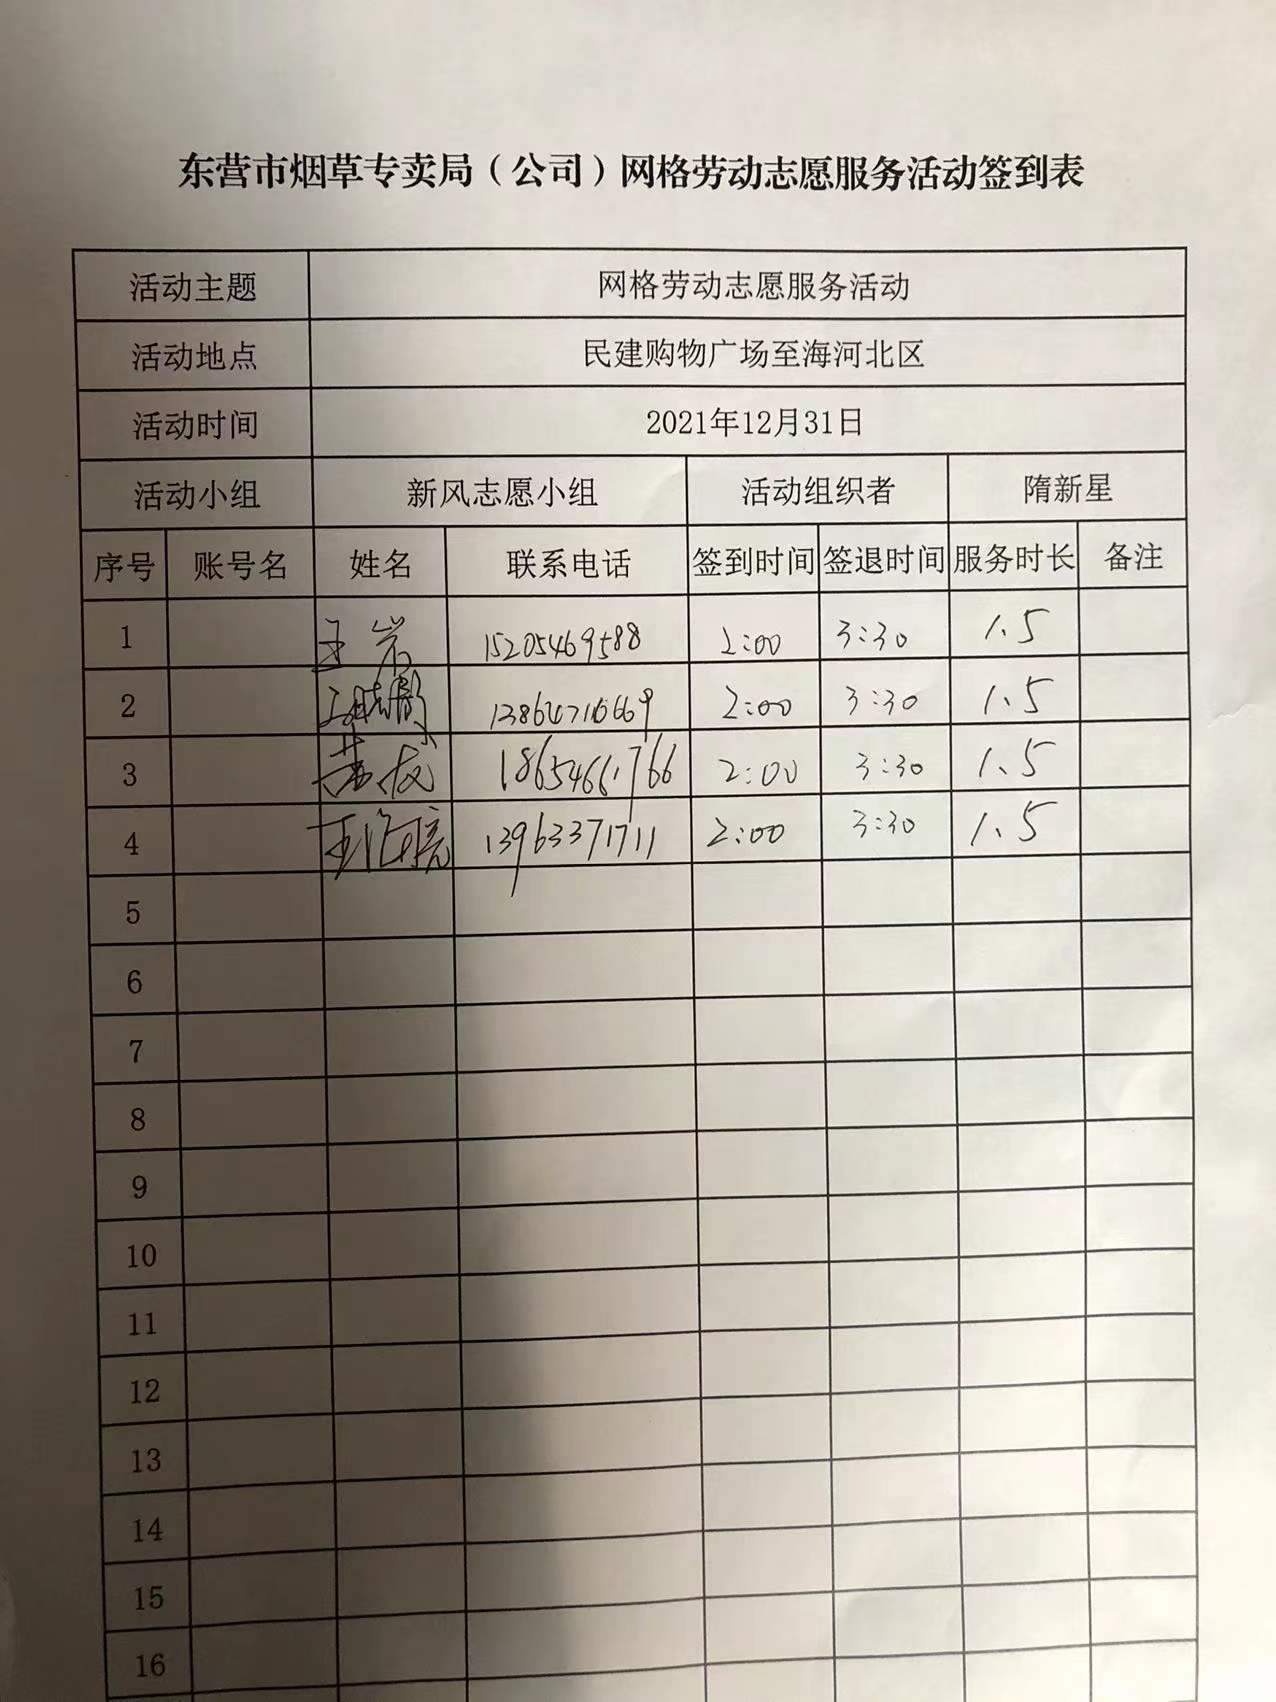 东营市烟草专卖局（公司）网格劳动志愿服务活动签到表
活动主题 网格劳动志愿服务活动
活动地点 民建购物广场至海河北区
活动时间 2021年12月31日
活动小组 新风志愿小组 活动组织者 隋新星
序号 账号名 姓名 联系电话 签到时间 签退时间 服务时长 备注
1 王岩 15205469588 2:00 3:30 1.5
2 2:00 3:30 1.5
3 18654661766 2:00 3:30 1.5
4 13963371711 2:00 3:30 1.5
5
6
7
8
9
10
11
12
13
14
15
16